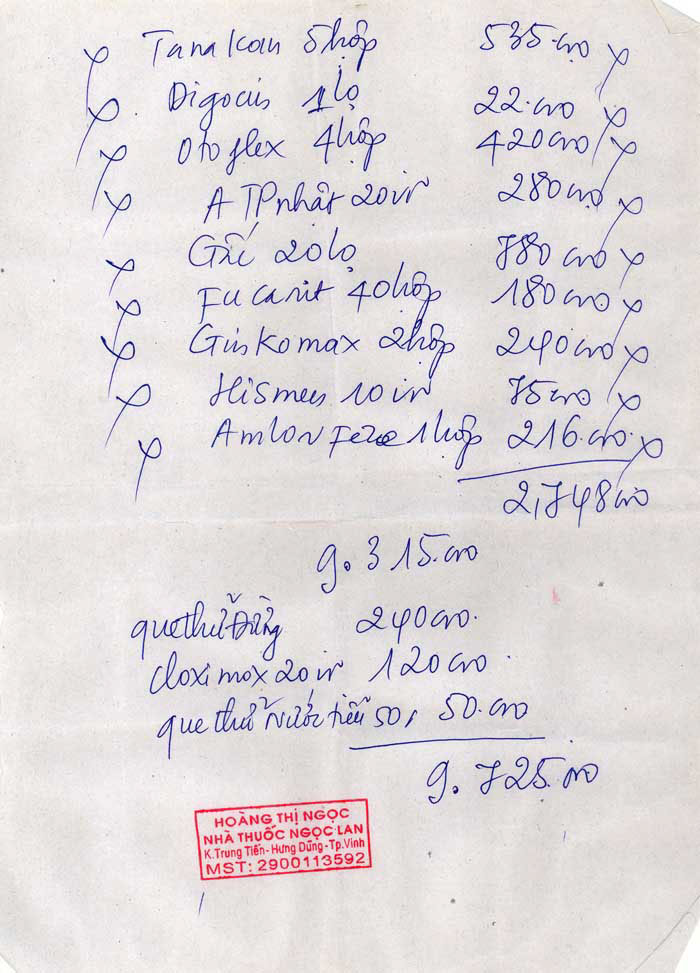 Tanakan 5 hộp 535.000
Digocis 1 lọ 22.000
Otoflex 4 hộp 420000
ATP nhật 20 vỉ 280000
Gấc 20 lọ 780000
Fucarit 40 hộp 180000
Ginkomax 2 hộp 240000
Hismen 10 vỉ 75000
Amlor 1 hộp 216.000
2,748000
9.315.000
que thử Đường 240000.
cloximox 20 vỉ 120000.
que thử nước tiểu 50, 50.000
9.725.000
HOÀNG THỊ NGỌC
NHÀ THUỐC NGỌC LAN
K.Trung Tiến-Hưng Dũng-Tp.Vinh
MST: 2900113592